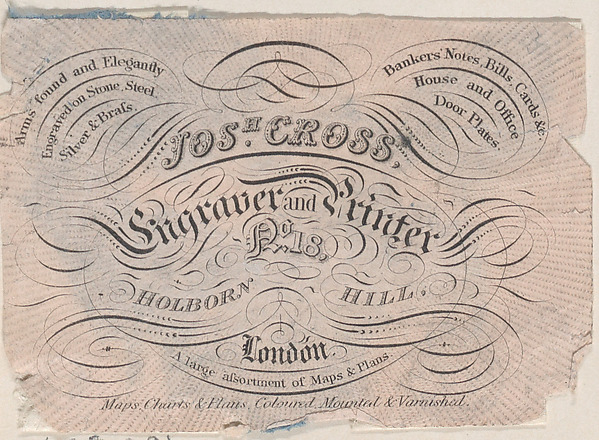 Arms found and Elegantly
Engraved on Stone, Steel,
Silver & Braſs.
Bankers' Notes, Bills, Cards &c.
House and Office
Door Plates.
JOS.H CROSS,
Engraver and Printer
No. 18,
HOLBORN HILL,
London
A large aſsortment of Maps & Plans
Maps, Charts & Plans, Coloured, Mounted & Varnished.